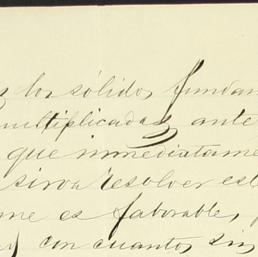 los sólidos fundam
multiplicadas ante
que inmediatame
sirva resolver est
me es faborable,
con cuantos sin